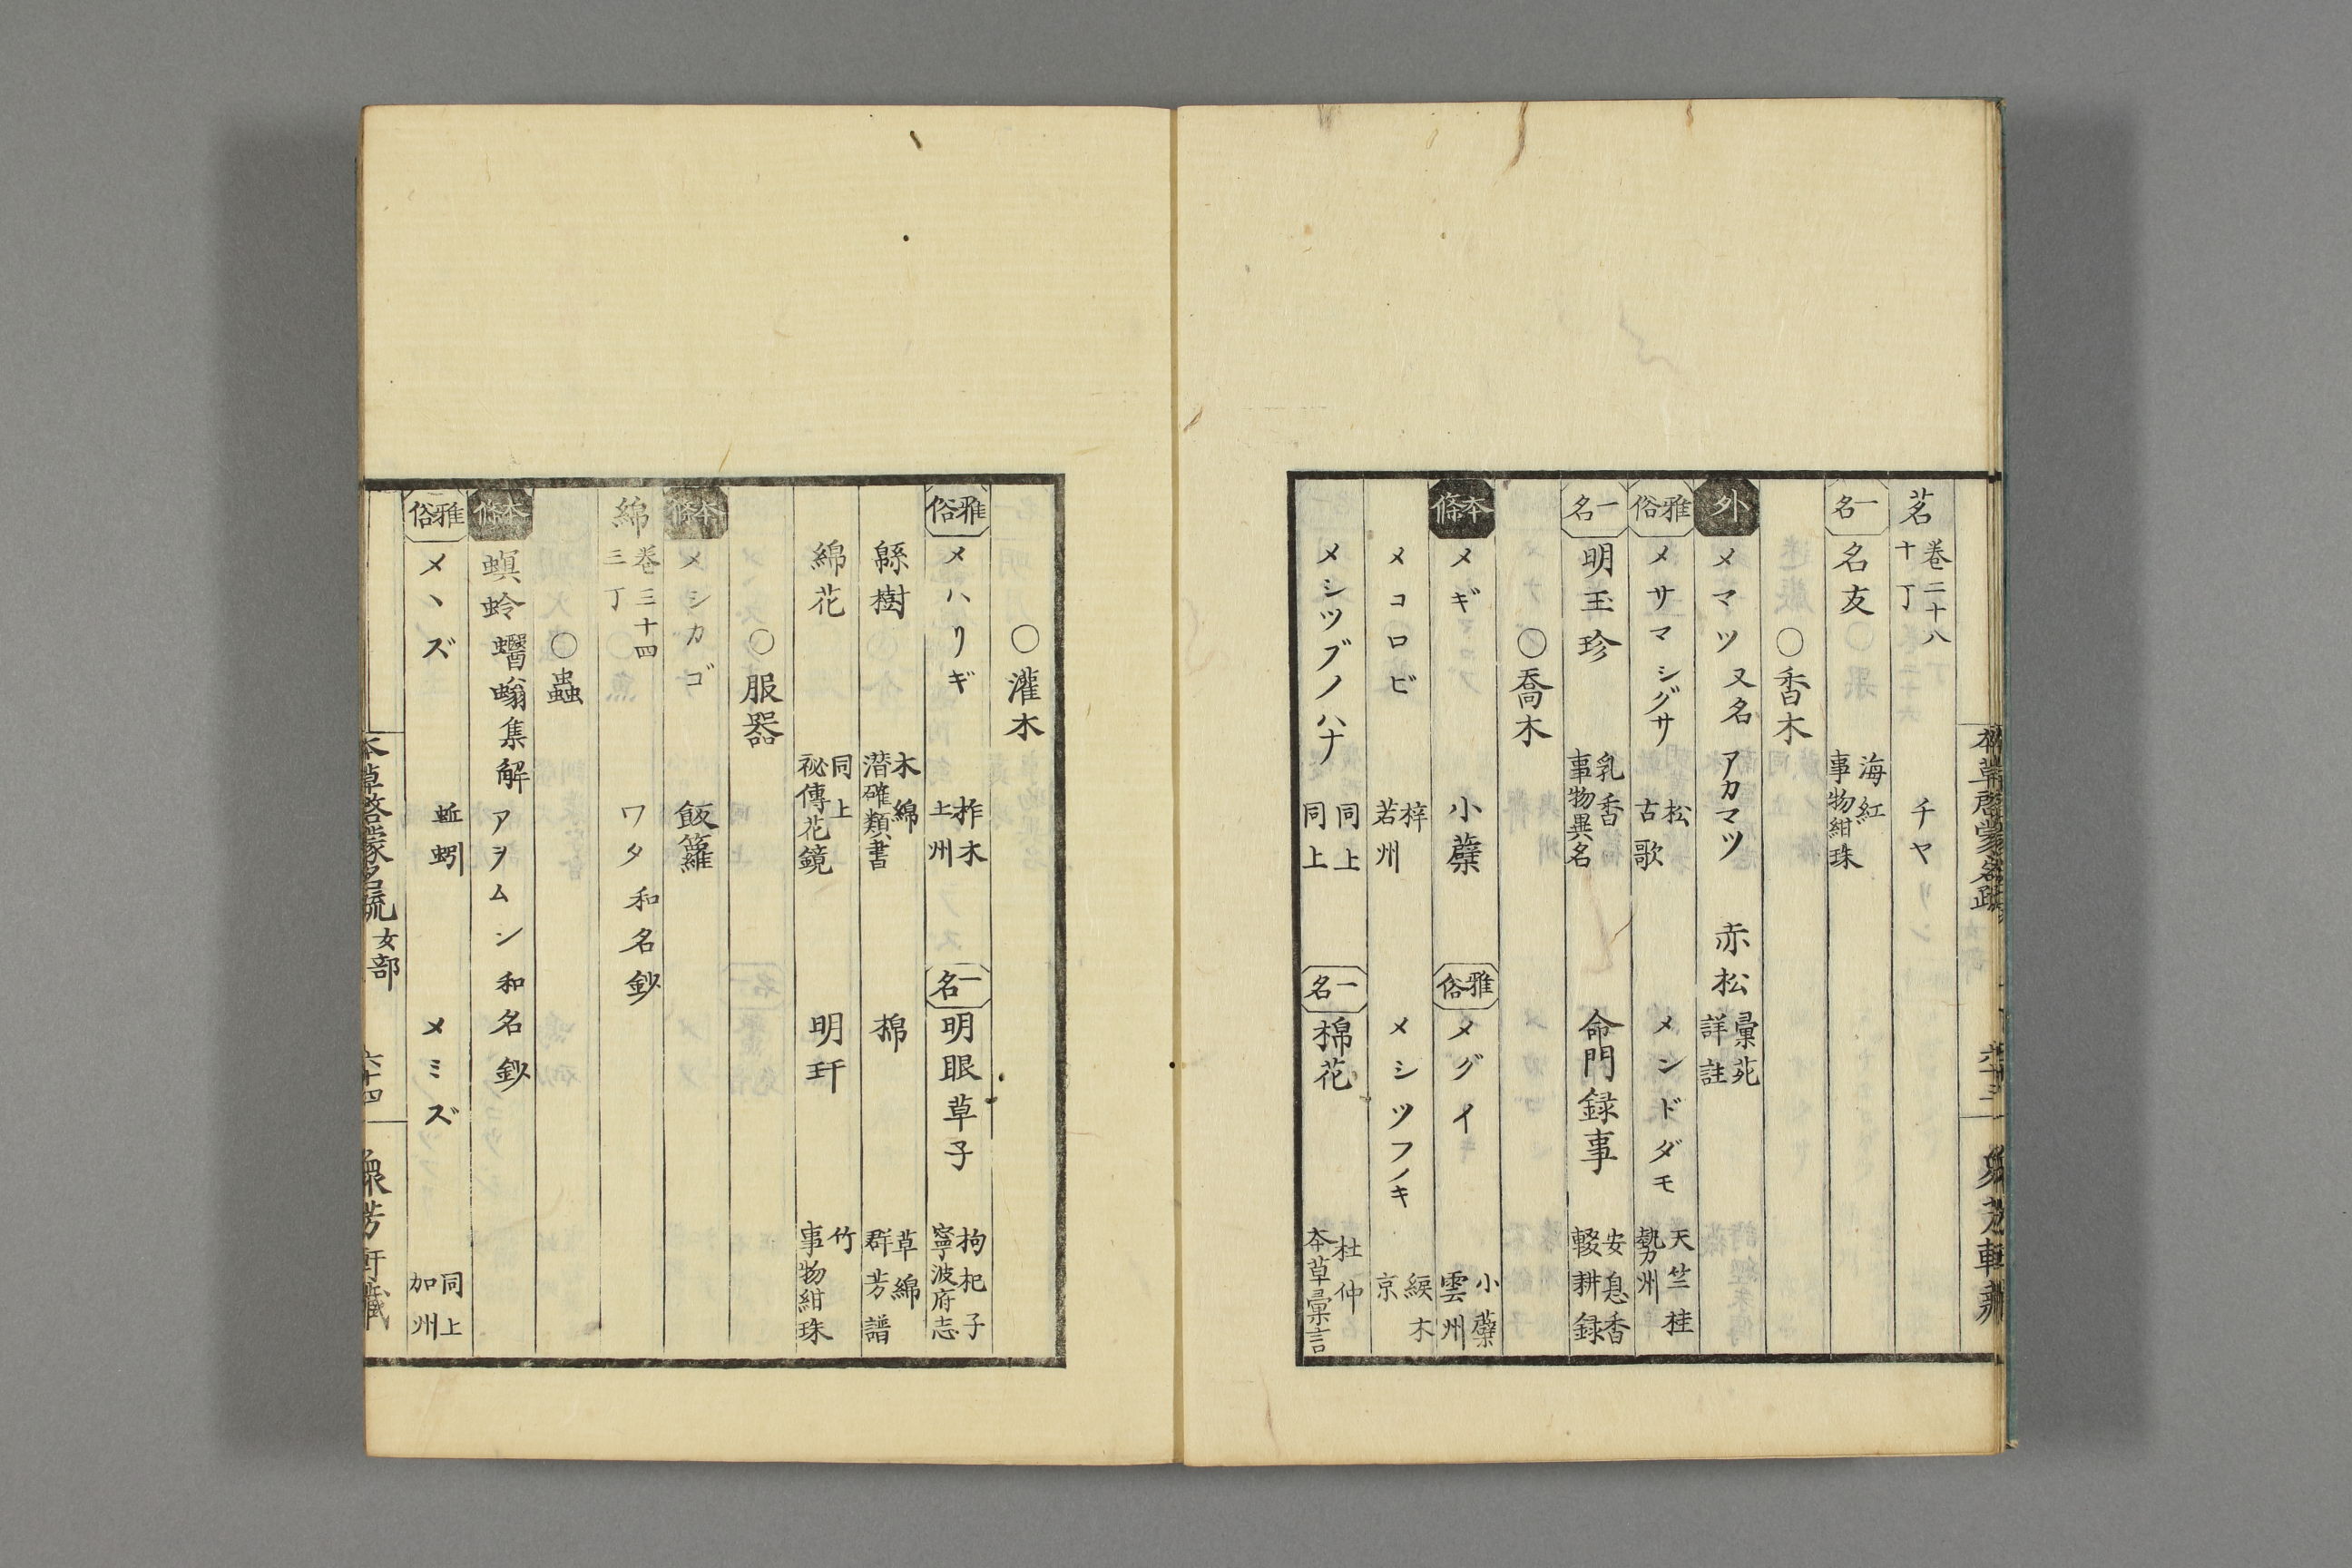 茗 巻二十八 十丁 チヤ
一名 名友 海紅 事物紺珠
○香木
外 メマツ 又名 アカマツ 赤松 彙苑詳註
雅俗 メサマシグサ 松 古歌 メンドダモ 天竺桂 勢州
一名 明玉珍 乳香 事物異名 命門録事 安息香 輟耕録
○喬木
本條 メギ 小蘗 雅俗 メグイ 小蘗 雲州
メコロビ 梓 若州 メシツフノキ 綟木 京
メシツブノハナ 同上 同上 一名 棉花 杜仲 本草彙言
○灌木
雅俗 メハリギ 柞木 上州 一名 明眼草子 拘杞子 寧波府志
緜樹 木綿 潜確類書 棉 草綿 群芳譜
綿花 同上 秘傳花鏡 明玕 竹 事物紺珠
○服器
本條 メシカゴ 飯籮
綿 巻三十四 三丁 ワタ 和名鈔
○蟲
本條 螟蛉 蠮螉集解 アヲムシ 和名鈔
雅俗 メヽズ 蚯蚓 メミズ 同上 加州
本草啓蒙名疏 女部 六十四 衆芳軒藏